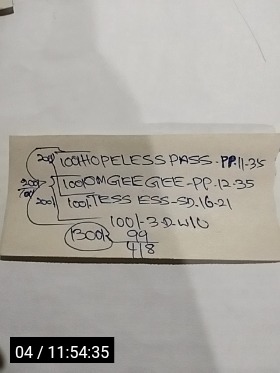 200 100/HOPELESS PASS-PP.11-35
100/OMGEE GEE-PP.12-35
200 100/TESS ESS-SD.16-21
100/-3-D.W/O
1300/- 99
418
04 / 11:54:35